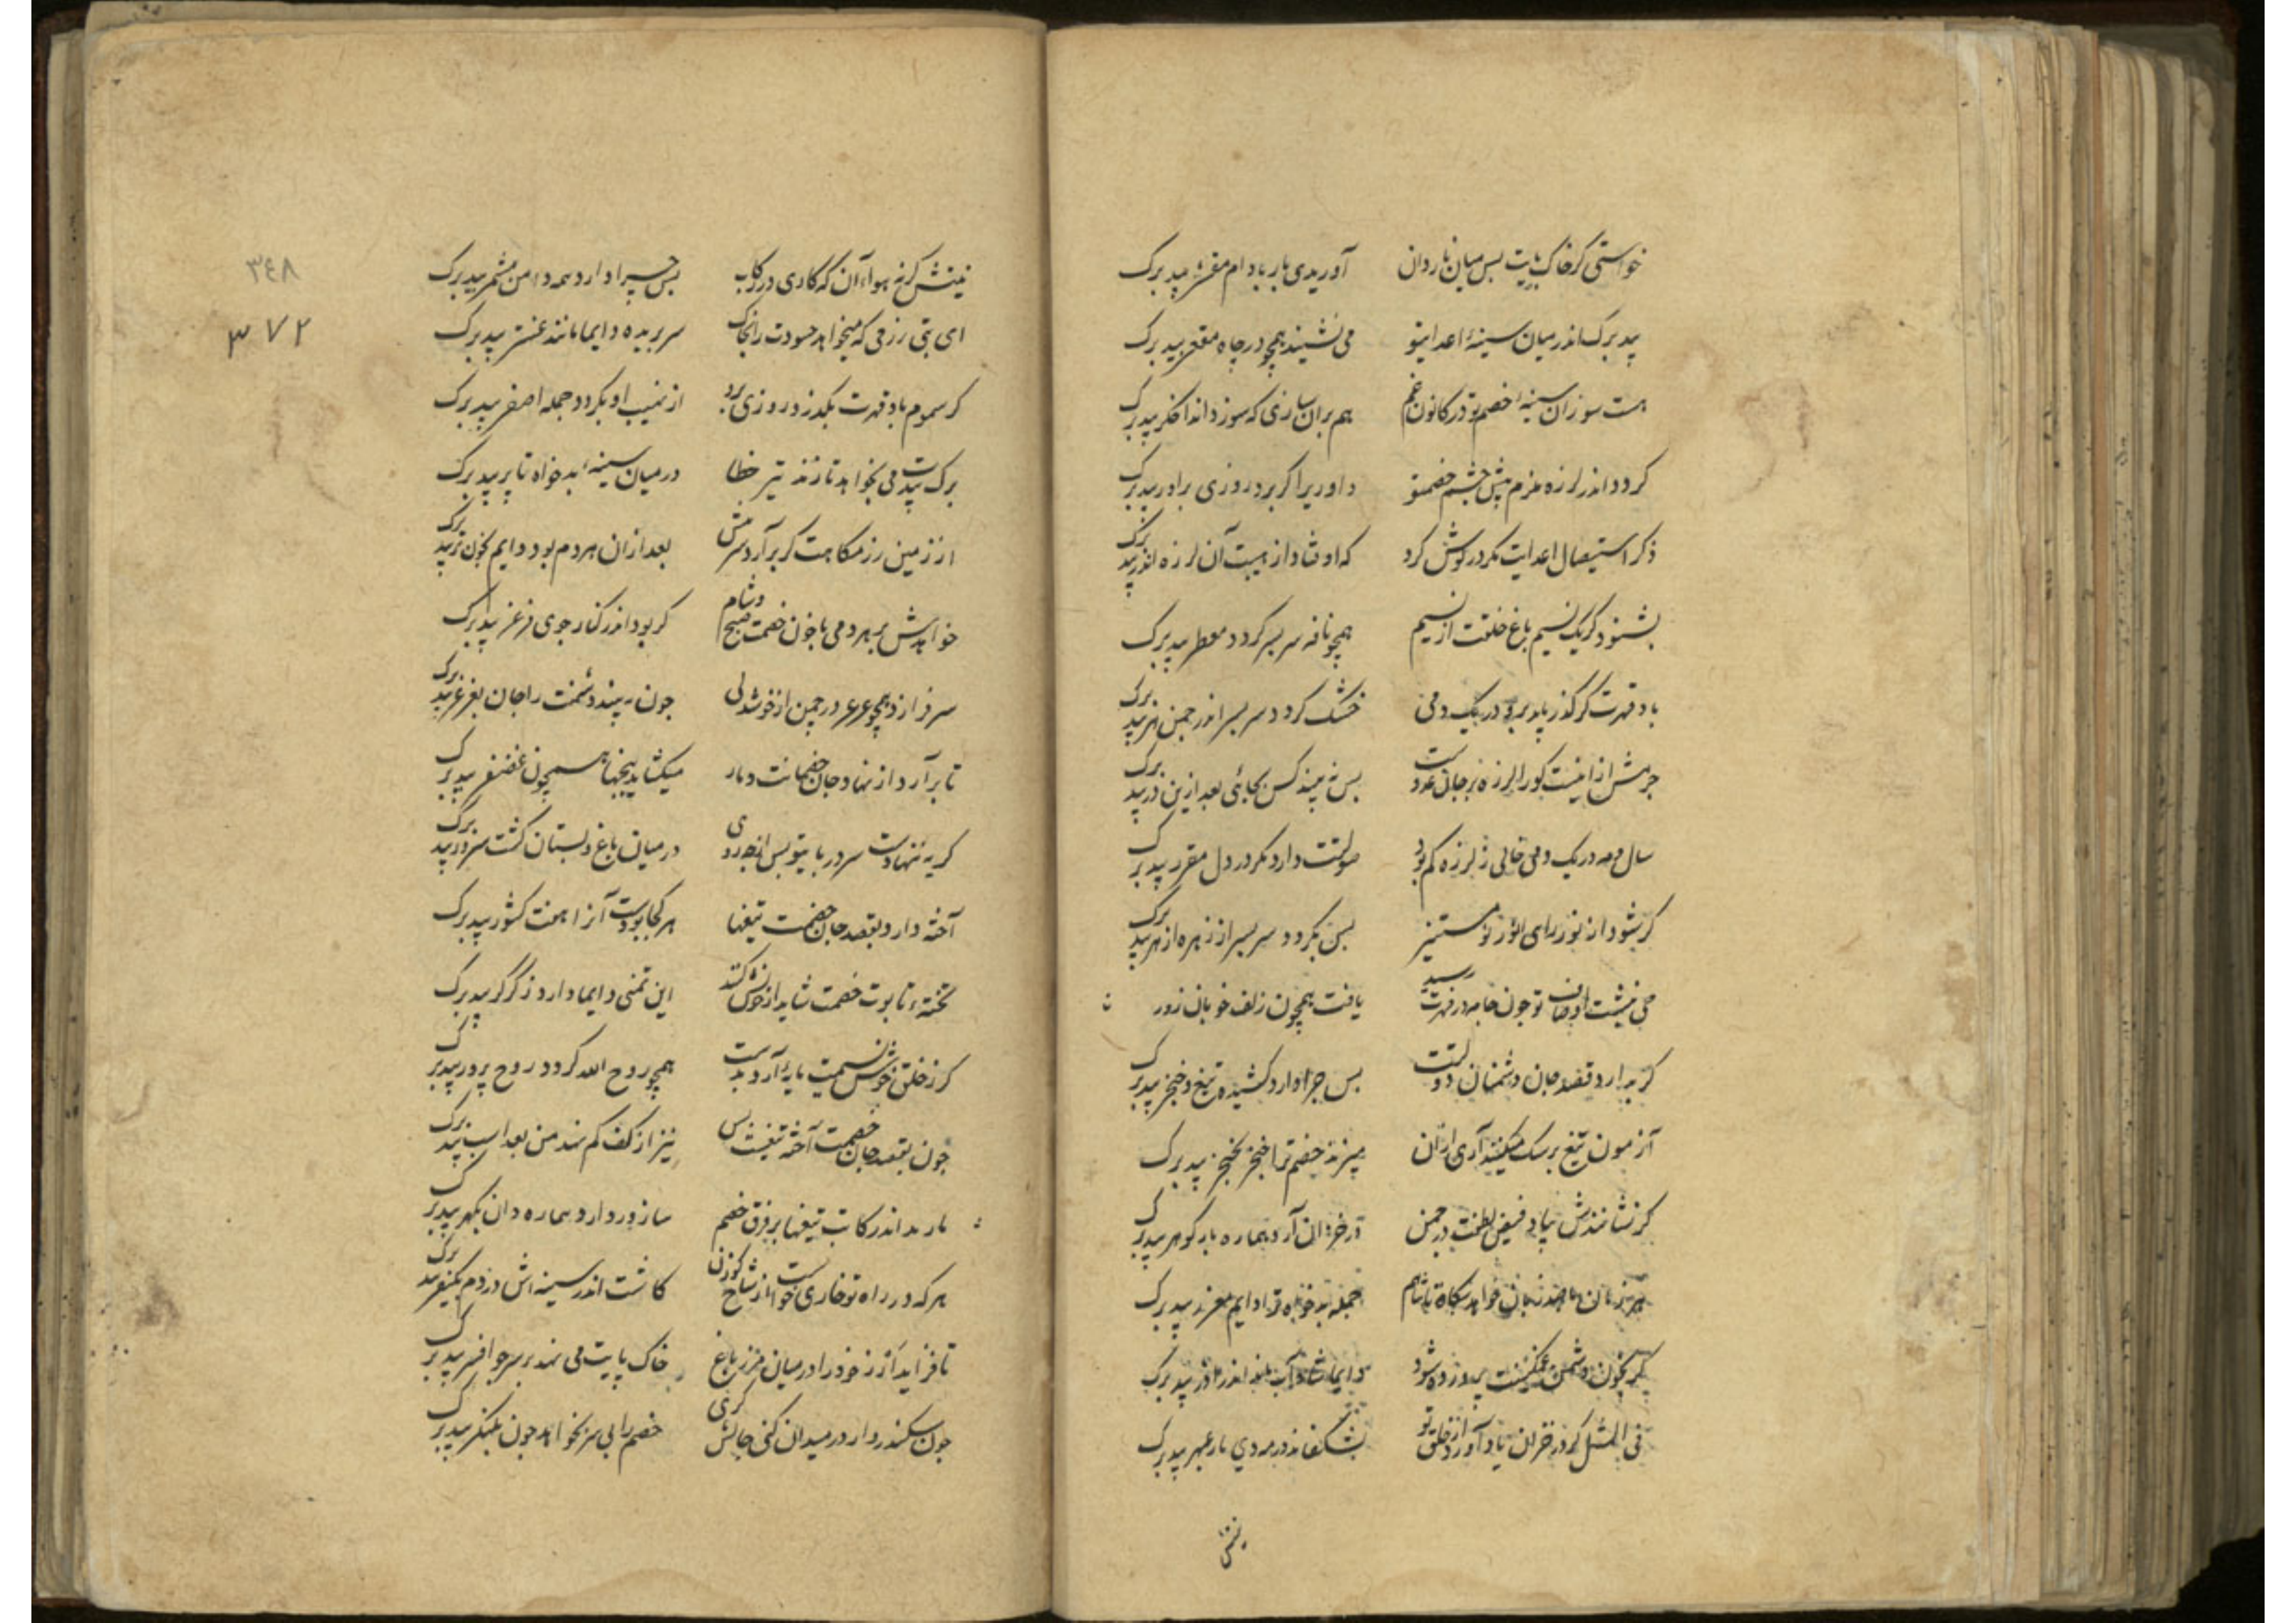 خواستی گر خاک پایت بس میان ناردان آوریدی بار بادام مقشر بید برگ
بید برگ اندر میان سینهٔ اعدایتو می نشیند همچو در چاه مقعر بید برگ
هست سوزان سینهٔ خصم تو در کانون غم هم بران سازی که سوزد اندر اخگر بید برگ
گردد اندر لرزه ملزم پیش چشم خصمتو داوریرا گر برد روزی برادر بید برگ
ذکر استیصال اعدایت مگر در گوش کرد که اوفتاد از هیبت آن لرزه اندر بید برگ
بشنود گر یک نسیم باغ خلقت از نسیم همچو نافه سر بسر گردد معطر بید برگ
باد قهرت گر گذر یابد برو در یک دمی خشک گردد سر بسر اندر چمن هر بید برگ
جرمش از اینست کورا لرزه بر جان عدوست بس نه بیند کس بجائی بعد ازین در بید برگ
سال و مه در یک دمی خالی ز لرزه کم بود صولتت دارد مگر در دل مقرر بید برگ
گر شود از نور رای انور تو مستنیر بس بگردد سر بسر از زهره ازهر بید برگ
می نبشت اوصاف تو چون خامه در فهرت رسید یافت همچون زلف خوبان زور
گر ندارد قصد جان دشمنان دولتت بس چرا دارد کشیده تیغ و خنجر بید برگ
آزمون تیغ بر سک میکنند آری ازان میزند خصم ترا خنجر بخنجر بید برگ
گر نشانندش بیاد فیض لطفت در چمن در خزان آرد هماره بار گوهر بید برگ
هر زمان با صد زبان خواهد پگاه تا شام جمله بدخواه ترا دایم معزر بید برگ
گر بخون دشمن غمگینت پرورده شود دایما شاداب باشد اندر آذر بید برگ
فی المثل گر در خزان یاد آورد از خلق تو بشکفاند در مه دی بار عبهر بید برگ
نیتش گر نه هوا آن که کاری در رکاب بس چرا دارد همه دامن مشمر بید برگ
ای بتی رزقی که میخواهد حسودت را بخاک سر بریده دایما مانند عنتر بید برگ
گر سموم باد قهرت بگذرد روزی برو از نهیب او بگردد جمله اصفر بید برگ
برگ بیدت می بخواهد تا زند تیر خطا در میان سینهٔ بدخواه تا پر بید برگ
از زمین رزمگاهت گر برآرد سرمش بعد ازان هر دم بود دایم بخون تر بید برگ
خواهدش هر دمی با خون خصمت صبح و شام گر بود اندر کنار جوی فرغر بید برگ
سر فرازد همچو عرعر در چمن از خوشدلی چون به بیند دشمنت را جان بغرغر بید برگ
تا برآرد از نهاد جان خصمانت دمار میکشاید پنجها همچون غضنفر بید برگ
گر نه بنهادست سر در پایتو بس از چه روی در میان باغ و بستان گشت سرور بید برگ
آخته دارد بقصد جان خصمت تیغها هر کجا بودست آنرا هفت کشور بید برگ
تختهٔ تابوت خصمت شاید از چوبش کنند این تمنی دایما دارد ز گرگر بید برگ
گر ز خلق خوش نسیمت مایهٔ آرد بدست همچو روح الله گردد روح پرور بید برگ
چون بقصد جان خصمت آخته تیغیست بس نیز از کف کم نهد من بعد اسب بید برگ
بارید اندر رکابت تیغها بر فرق خصم ساز ور دارد هماره دان بگهر بید برگ
هر که در راه تو خاری خواست از شاخ گوزن کاشت اندر سینه اش در دم بکیفر بید برگ
تا فزاید ارز خود را در میان مرز باغ خاک پایت می نهد بر سر چو افسر بید برگ
چون سکندر وار در میدان کنی چالش گری خصم را بی سر بخواهد چون بلنگر بید برگ
نیتش
٣٤٨
٣٧٢